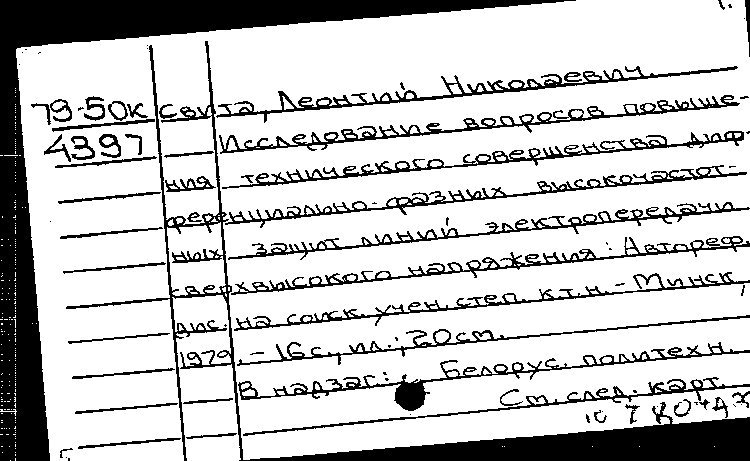 1.
79-50к Свита, Леонтий Николаевич.
4397 Исследование вопросов повыше-
ния технического совершенства диф-
ференциально-фазных высокочастот-
ных защит линий электропередачи
сверхвысокого напряжения: Автореф.
дис. на соиск. учен. степ. к.т.н. - Минск,
1979. - 16с., ил.; 20см.
В надзаг.: Белорус. политехн.
См. след. карт.